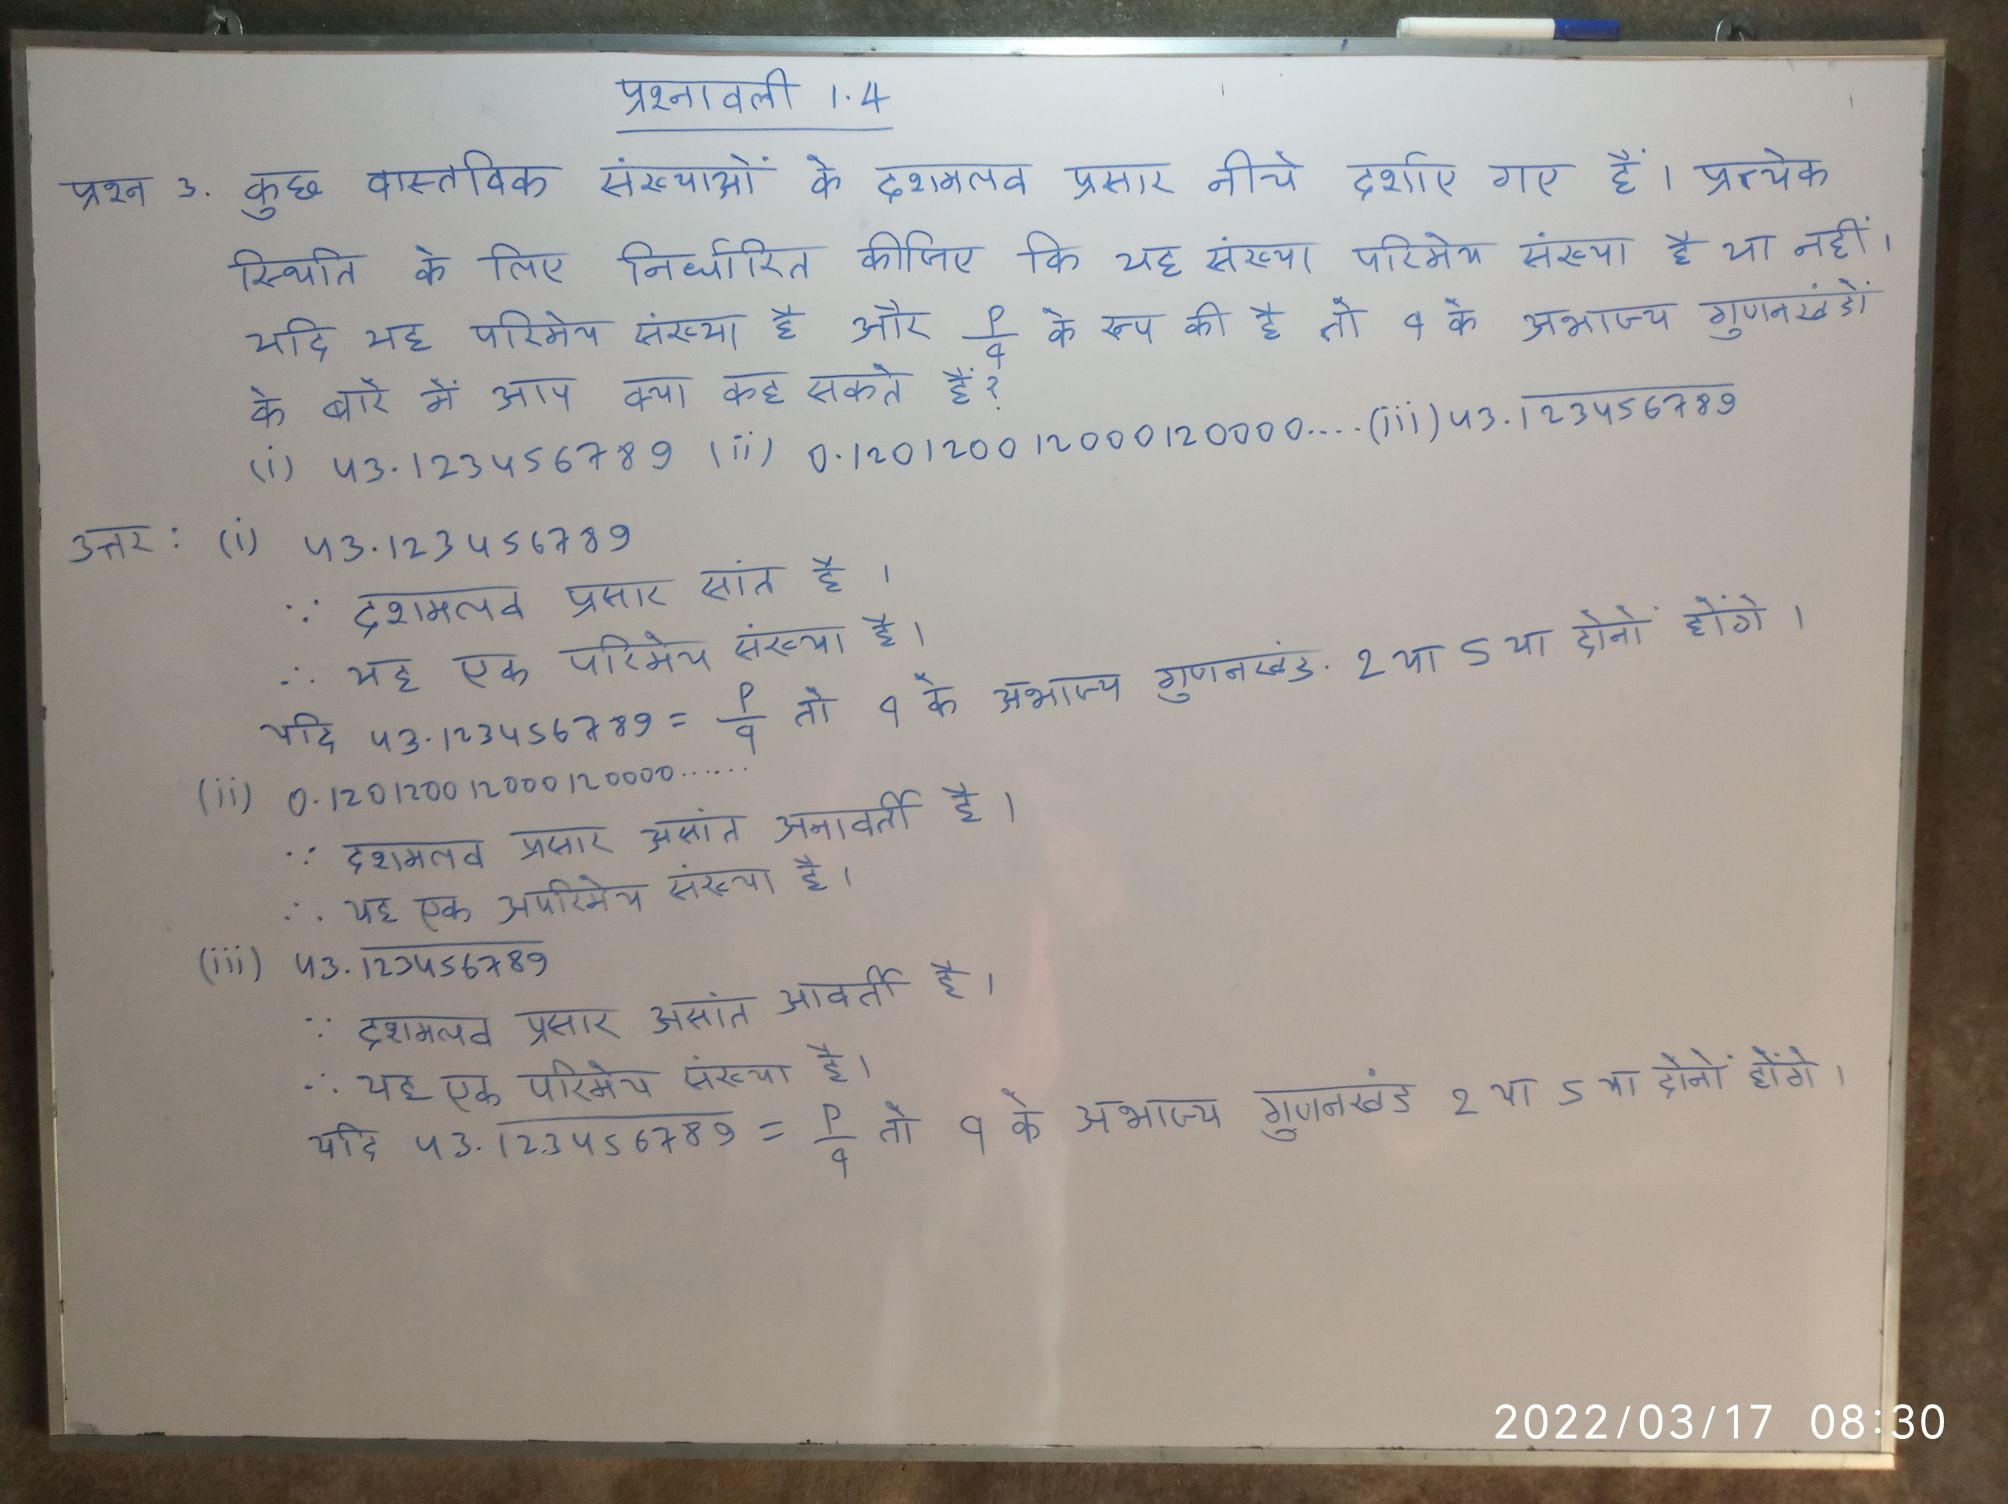 प्रश्नावली 1.4
प्रश्न 3. कुछ वास्तविक संख्याओं के दशमलव प्रसार नीचे दर्शाए गए हैं। प्रत्येक
स्थिति के लिए निर्धारित कीजिए कि यह संख्या परिमेय संख्या है या नहीं।
यदि यह परिमेय संख्या है और p/q के रूप की है तो q के अभाज्य गुणनखंडों
के बारे में आप क्या कह सकते हैं?
(i) 43.123456789 (ii) 0.120120012000120000.... (iii) 43.1̅2̅3̅4̅5̅6̅7̅8̅9̅
उत्तर : (i) 43.123456789
∵ दशमलव प्रसार सांत है ।
∴ यह एक परिमेय संख्या है।
यदि 43.123456789 = p/q तो q के अभाज्य गुणनखंड 2 या 5 या दोनों होंगे ।
(ii) 0.120120012000120000......
∵ दशमलव प्रसार असांत अनावर्ती है ।
∴ यह एक अपरिमेय संख्या है।
(iii) 43.1̅2̅3̅4̅5̅6̅7̅8̅9̅
∵ दशमलव प्रसार असांत आवर्ती है ।
∴ यह एक परिमेय संख्या है।
यदि 43.1̅2̅3̅4̅5̅6̅7̅8̅9̅ = p/q तो q के अभाज्य गुणनखंड 2 या 5 या दोनों होंगे ।
2022/03/17 08:30